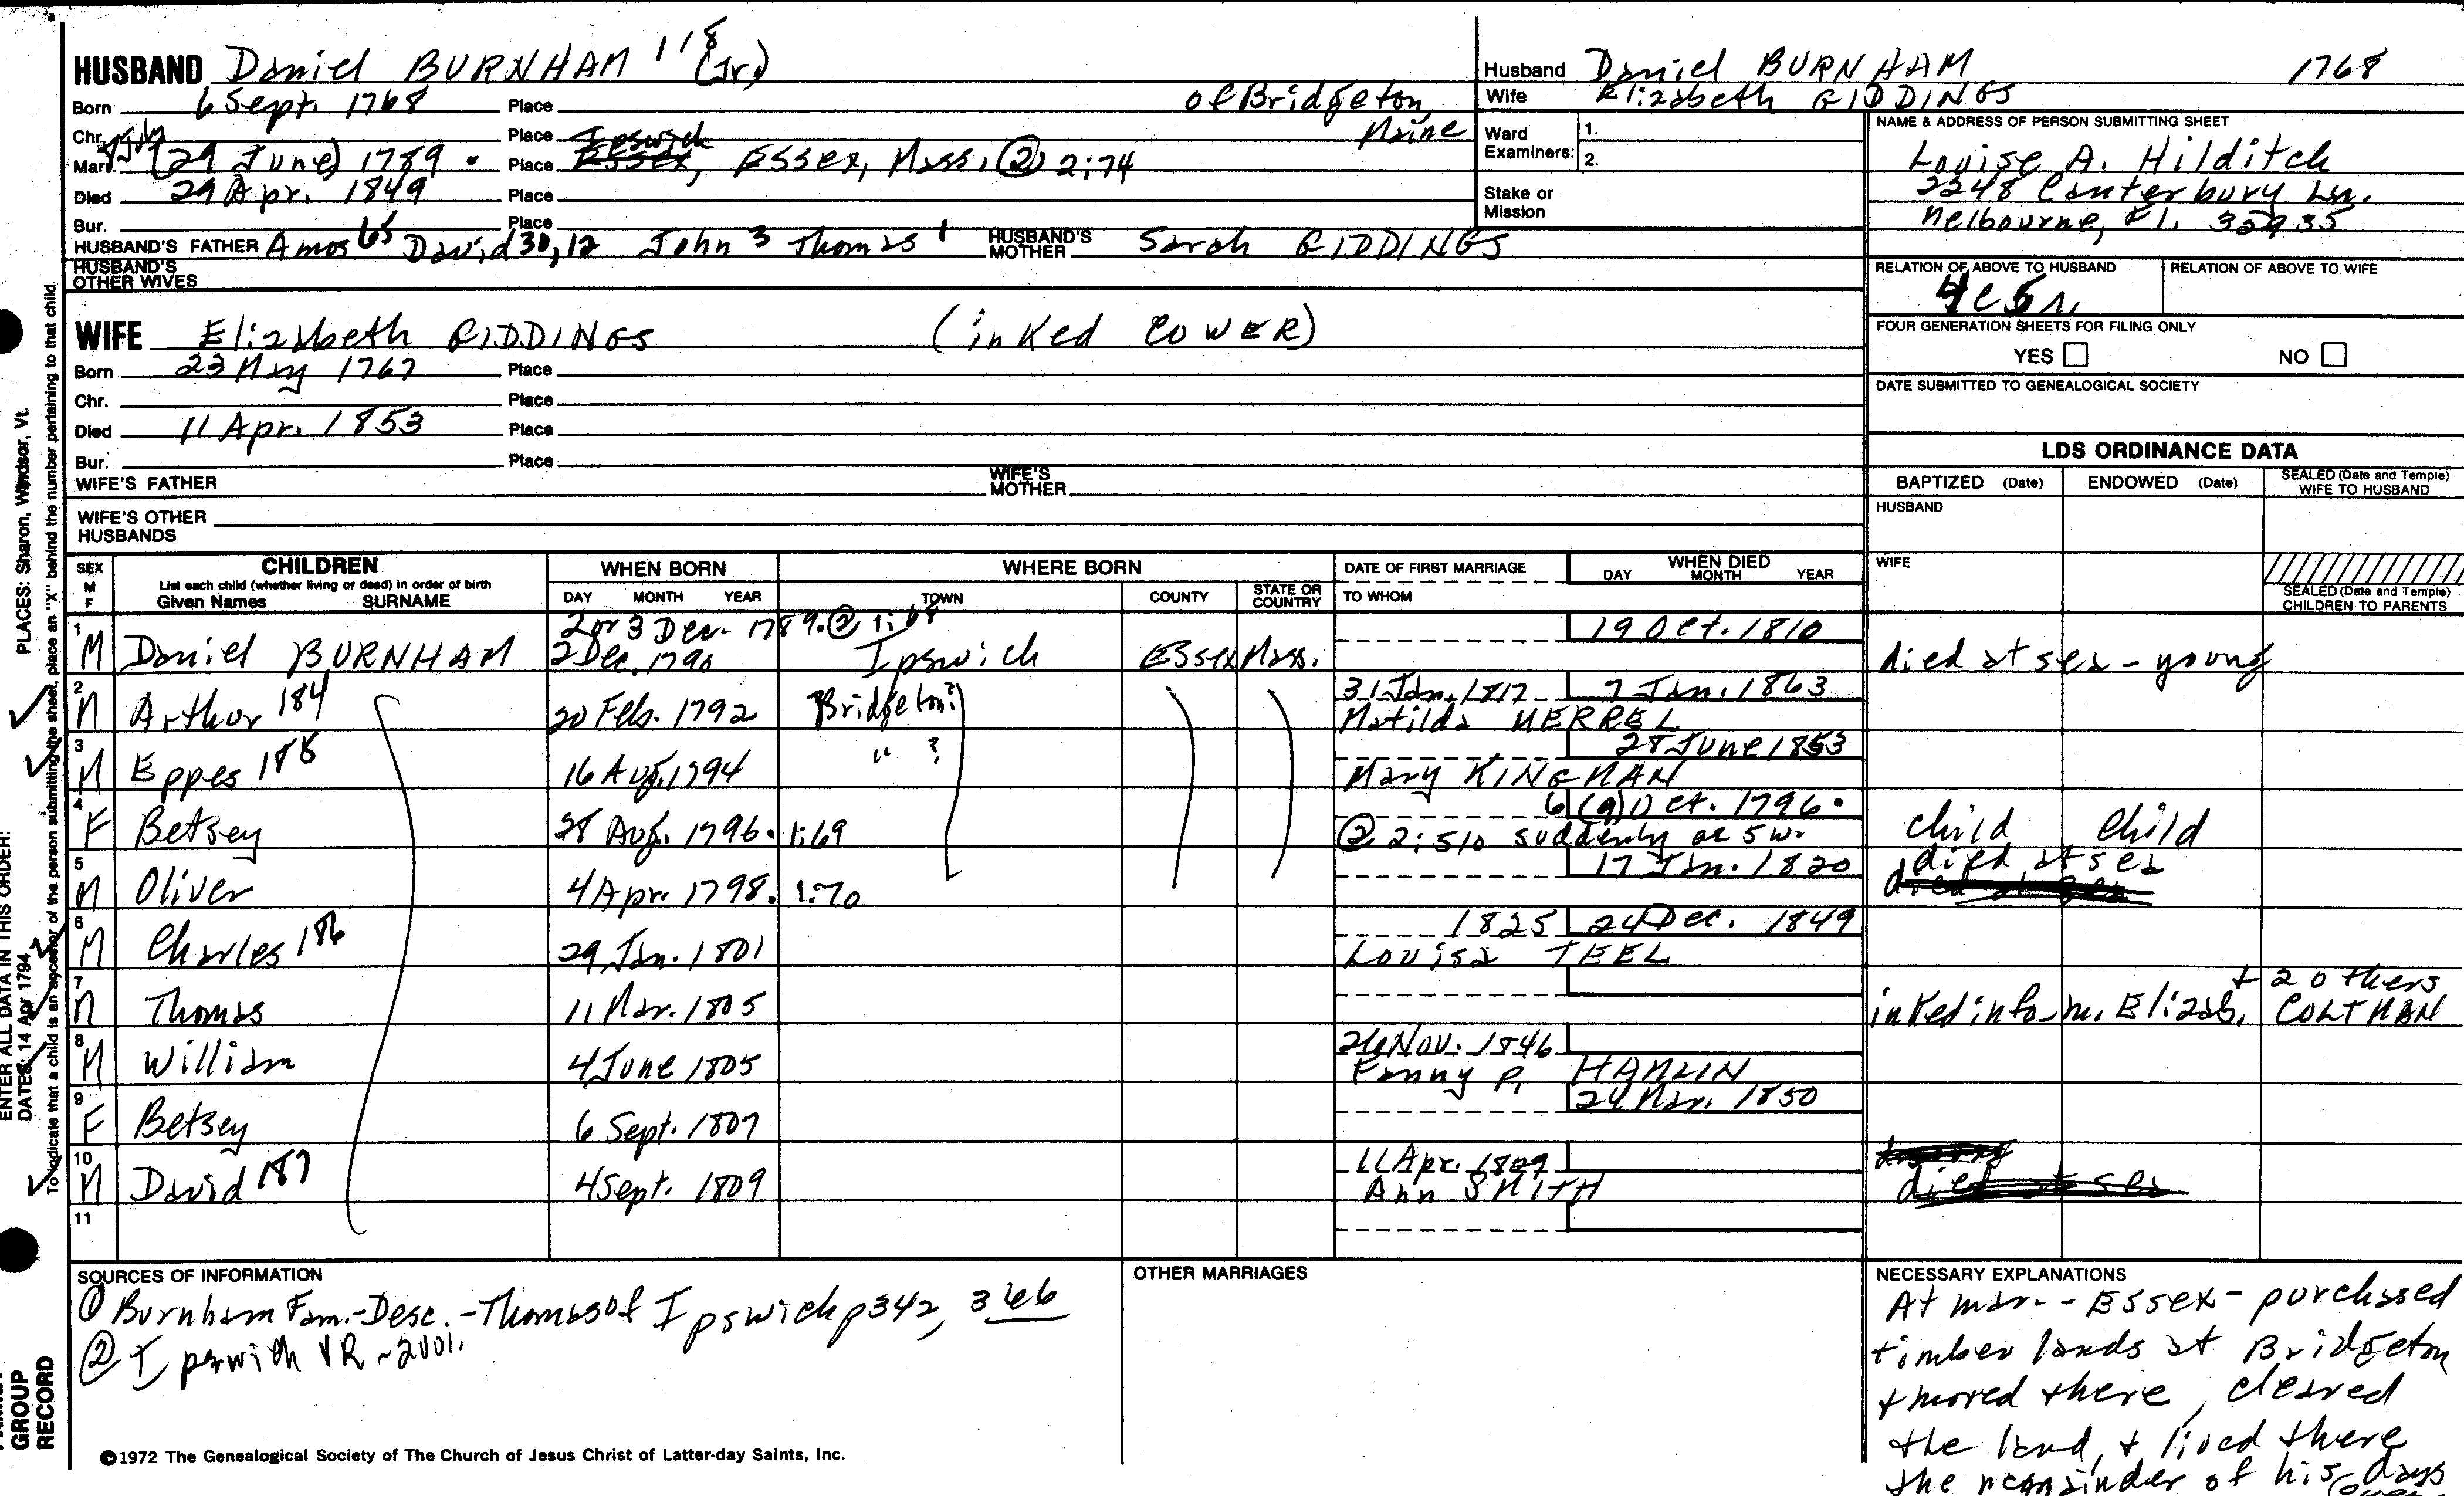 HUSBAND Daniel BURNHAM 118 (Jr.)
Born 6 Sept. 1768 Place of Bridgeton,
Chr. Place Maine
Marr. July (29 June) 1789. Place Ipswich Essex, Essex, Mass. ② 2:74
Died 29 Apr. 1849 Place
Bur. Place
HUSBAND'S FATHER Amos 65 David 30,12 John 3 Thomas 1 HUSBAND'S MOTHER Sarah GIDDINGS
HUSBAND'S OTHER WIVES
WIFE Elizabeth GIDDINGS (inked COWER)
Born 23 May 1767 Place
Chr. Place
Died 11 Apr. 1853 Place
Bur. Place
WIFE'S FATHER WIFE'S MOTHER
WIFE'S OTHER HUSBANDS
Husband Daniel BURNHAM 1768
Wife Elizabeth GIDDINGS
Ward Examiners: 1.
2.
Stake or Mission
NAME & ADDRESS OF PERSON SUBMITTING SHEET
Louise A. Hilditch
2248 Canterbury Ln.
Melbourne, Fl. 32935
RELATION OF ABOVE TO HUSBAND RELATION OF ABOVE TO WIFE
4c5r.
FOUR GENERATION SHEETS FOR FILING ONLY
YES NO
DATE SUBMITTED TO GENEALOGICAL SOCIETY
LDS ORDINANCE DATA
BAPTIZED (Date) ENDOWED (Date) SEALED (Date and Temple) WIFE TO HUSBAND
HUSBAND
WIFE
SEALED (Date and Temple) CHILDREN TO PARENTS
SEX M F CHILDREN List each child (whether living or dead) in order of birth Given Names SURNAME
WHEN BORN DAY MONTH YEAR
WHERE BORN TOWN COUNTY STATE OR COUNTRY
DATE OF FIRST MARRIAGE TO WHOM
WHEN DIED DAY MONTH YEAR
2 or 3 Dec. 1789. ② 1:68 19 Oct. 1810
1 M Daniel BURNHAM 2 Dec. 1790 Ipswich Essex Mass. died at sea - young
31 Jan. 1817 7 Jan. 1863
2 M Arthur 184 20 Feb. 1792 Bridgeton? Matilda MERREL
28 June 1853
3 M Eppes 185 16 Aug. 1794 " ? Mary KINGMAN
6 (9) Oct. 1796.
4 F Betsey 28 Aug. 1796. 1:69 ② 2:510 suddenly ae 5 w. child child
17 Jan. 1820 died at sea
5 M Oliver 4 Apr. 1798. 1:70 died at sea
1825 24 Dec. 1849
6 M Charles 186 29 Jan. 1801 Louisa TEEL
+ 2 others
7 M Thomas 11 Mar. 1805 inked info - m. Elizab. COLTMAN
26 Nov. 1846
8 M William 4 June 1805 Fanny P. HAMLIN
24 Mar. 1850
9 F Betsey 6 Sept. 1807
11 Apr. 1829
10 M David 187 4 Sept. 1809 Ann SMITH died at sea
11
SOURCES OF INFORMATION
① Burnham Fam.-Desc.-Thomas of Ipswich p342, 366
② Ipswich VR - 2001.
OTHER MARRIAGES
NECESSARY EXPLANATIONS
At mar. - Essex - purchased
timber lands at Bridgeton
+ moved there, cleared
the land, + lived there
the remainder of his days
©1972 The Genealogical Society of The Church of Jesus Christ of Latter-day Saints, Inc.
PLACES: Sharon, Windsor, Vt.
ENTER ALL DATA IN THIS ORDER:
DATES: 14 Apr 1794
To indicate that a child is an ancestor of the person submitting the sheet, place an "X" behind the number pertaining to that child.
GROUP
RECORD